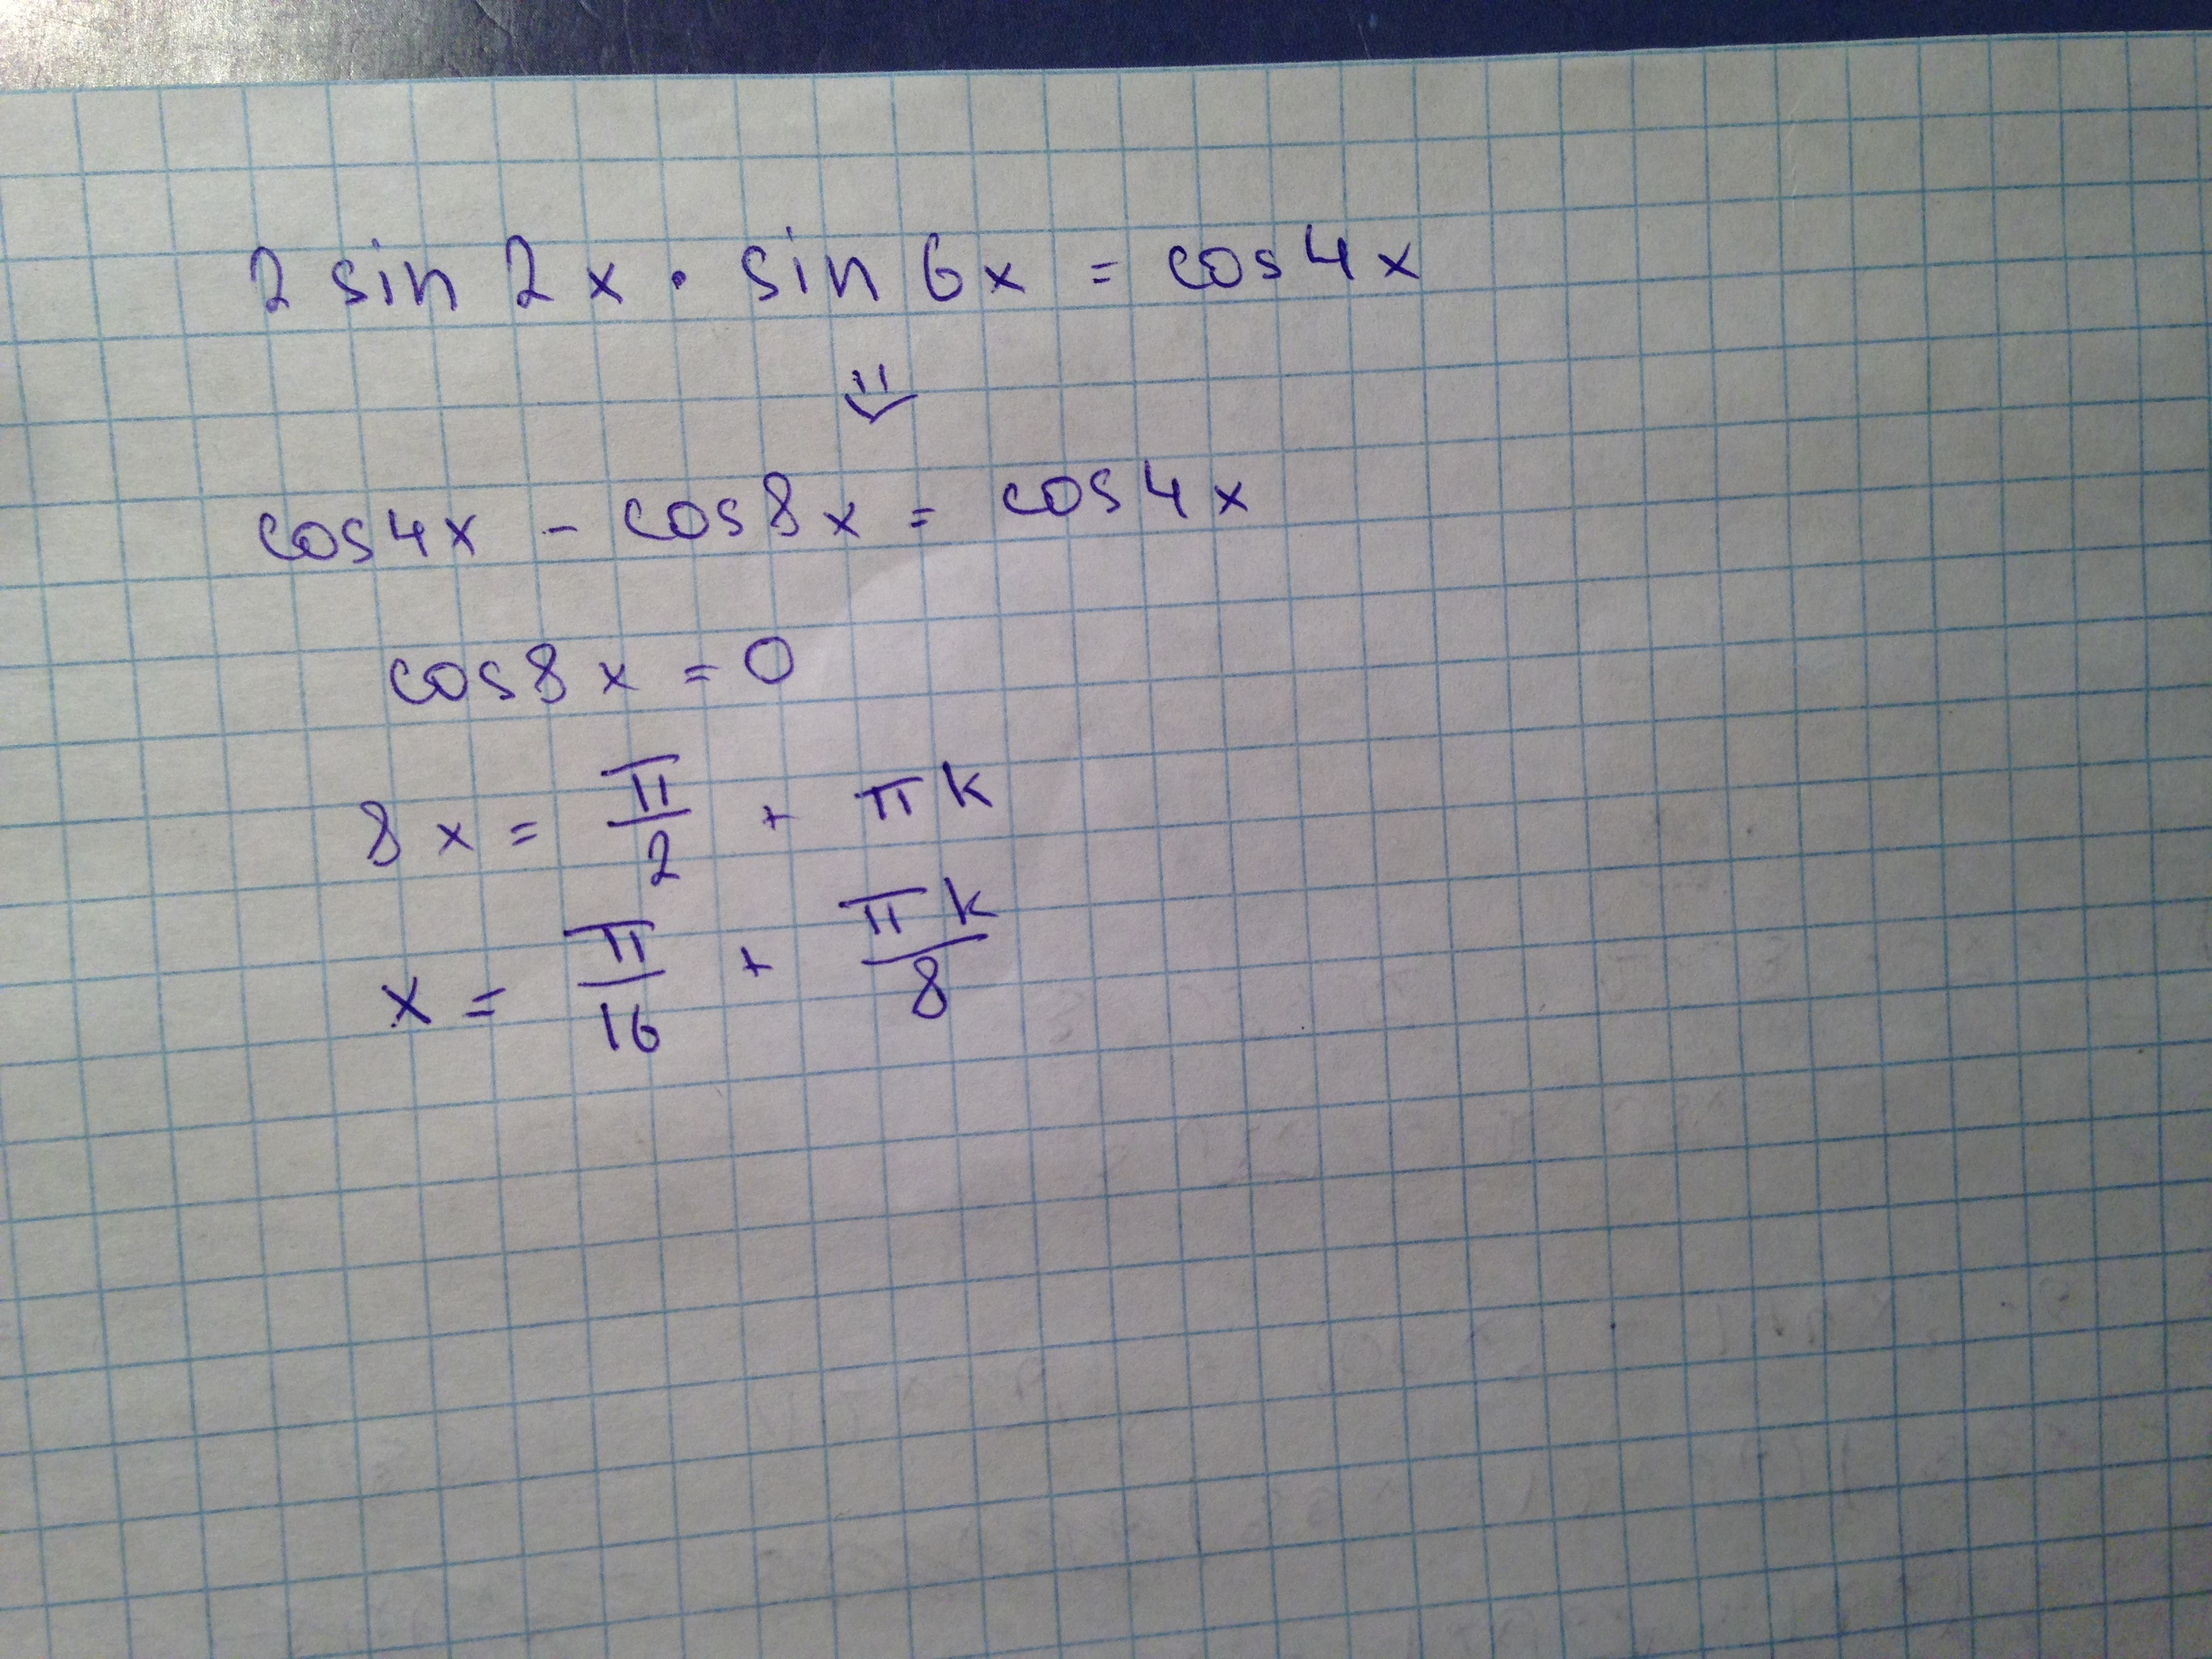 2 sin 2x · sin 6x = cos 4x
⇓
cos 4x - cos 8x = cos 4x
cos 8x = 0
8x = π/2 + πk
x = π/16 + πk/8